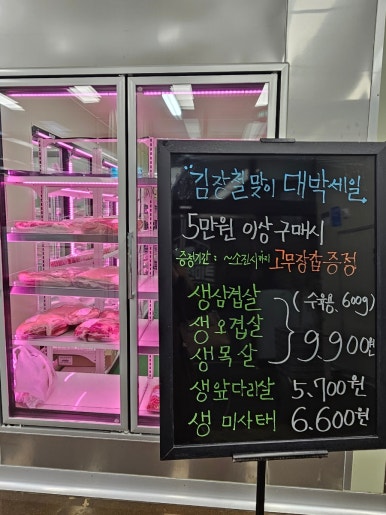 "김장철맞이 대박세일"
5만원 이상 구매시
증정기간 : ~소진시까지 고무장갑 증정
생삼겹살 (수육용, 600g)
생오겹살 9.900원
생목살
생앞다리살 5.700원
생미사태 6.600원